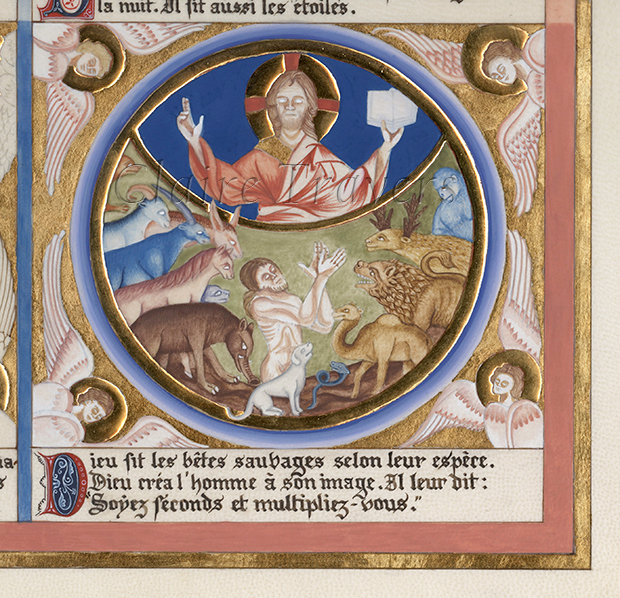 la nuit. Il fit aussi les étoiles.
Claire
Dieu fit les bêtes sauvages selon leur espèce.
Dieu créa l'homme à son image. Il leur dit :
"Soyez féconds et multipliez-vous."